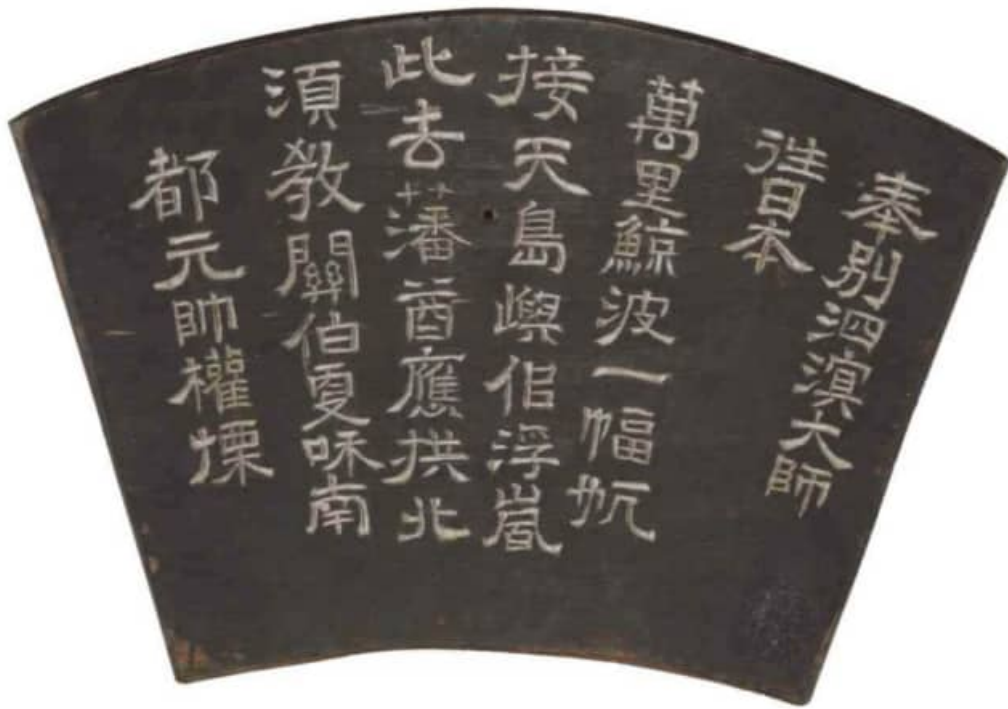 奉別泗溟大師
往日本
萬里鯨波一幅帆
接天島嶼佀浮嵐
此去藩酋應拱北
須教關伯更咊南
都元帥權慄